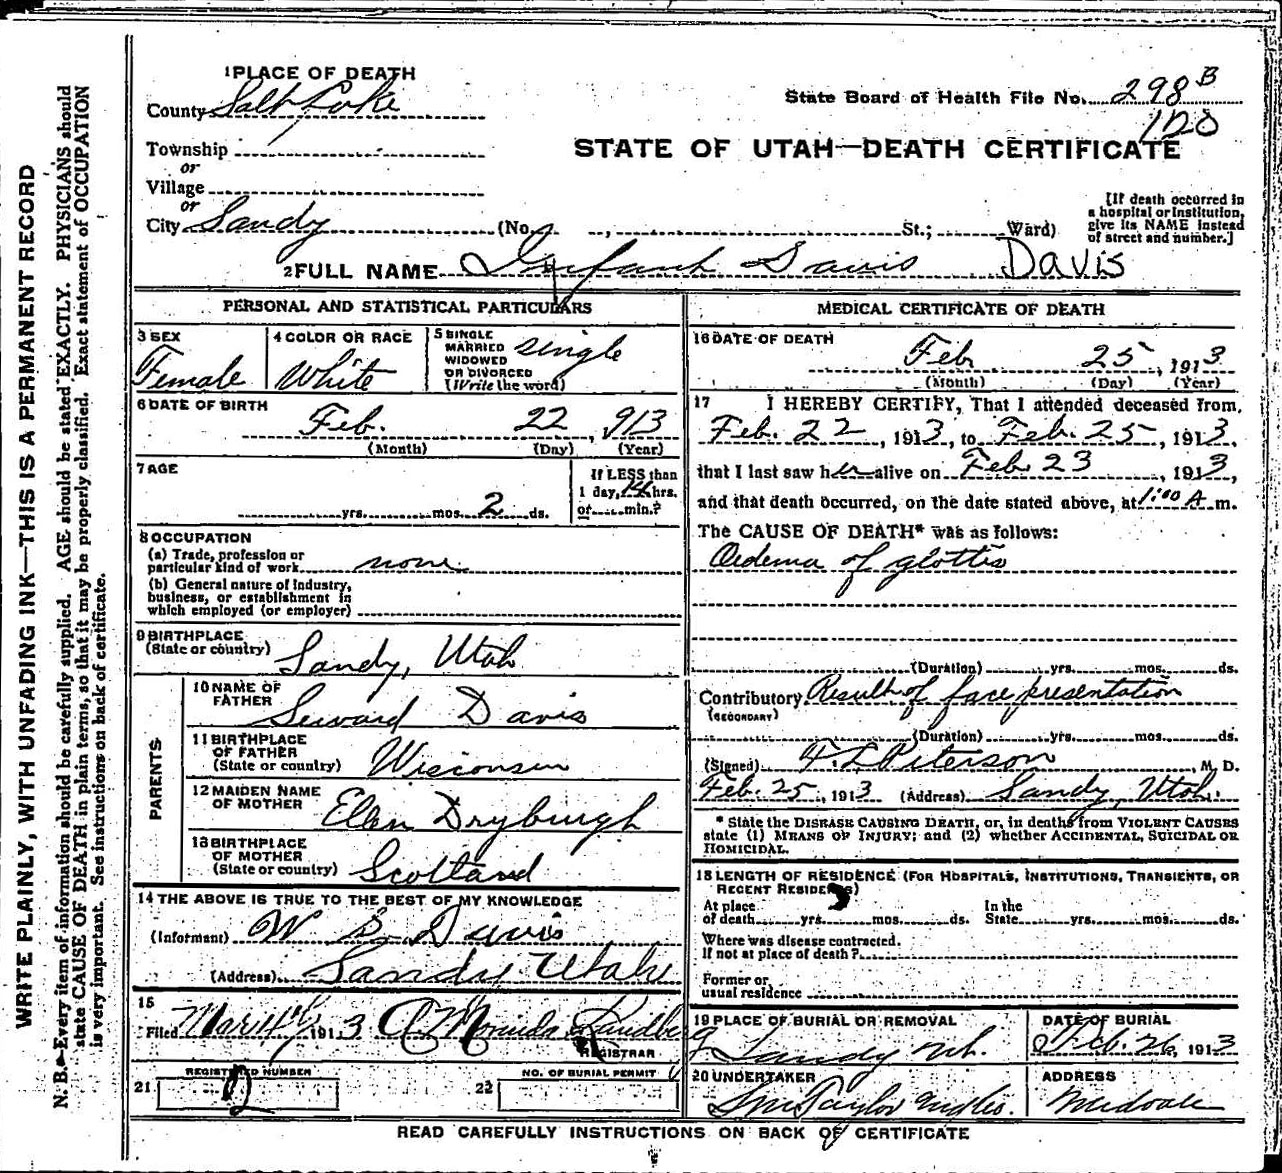 WRITE PLAINLY, WITH UNFADING INK—THIS IS A PERMANENT RECORD
N. B.—Every item of information should be carefully supplied. AGE should be stated EXACTLY. PHYSICIANS should
state CAUSE OF DEATH in plain terms, so that it may be properly classified. Exact statement of OCCUPATION
is very important. See instructions on back of certificate.
1 PLACE OF DEATH
County Salt Lake
State Board of Health File No. 298 B
120
STATE OF UTAH—DEATH CERTIFICATE
Township
or
Village
or
City Sandy (No. , St.; Ward)
[If death occurred in
a hospital or institution,
give its NAME instead
of street and number.]
2 FULL NAME Infant Davis Davis
PERSONAL AND STATISTICAL PARTICULARS
3 SEX
Female
4 COLOR OR RACE
White
5 SINGLE
MARRIED
WIDOWED
OR DIVORCED
(Write the word)
single
6 DATE OF BIRTH
Feb. 22, 913
(Month) (Day) (Year)
7 AGE
yrs. mos. 2 ds.
If LESS than
1 day, hrs.
or min.?
8 OCCUPATION
(a) Trade, profession or
particular kind of work none
(b) General nature of industry,
business, or establishment in
which employed (or employer)
9 BIRTHPLACE
(State or country) Sandy, Utah
PARENTS
10 NAME OF
FATHER
Seward Davis
11 BIRTHPLACE
OF FATHER
(State or country) Wisconsin
12 MAIDEN NAME
OF MOTHER
Ellen Dryburgh
13 BIRTHPLACE
OF MOTHER
(State or country) Scotland
14 THE ABOVE IS TRUE TO THE BEST OF MY KNOWLEDGE
(Informant) W S Davis
(Address) Sandy Utah
15
Filed Mar 1913
REGISTRAR
REGISTERED NUMBER
21 2
22 NO. OF BURIAL PERMIT
MEDICAL CERTIFICATE OF DEATH
16 DATE OF DEATH
Feb 25, 1913
(Month) (Day) (Year)
17 I HEREBY CERTIFY, That I attended deceased from
Feb. 22, 1913, to Feb. 25, 1913,
that I last saw her alive on Feb 23, 1913,
and that death occurred, on the date stated above, at 1:00 A m.
The CAUSE OF DEATH* was as follows:
Oedema of glottis
(Duration) yrs. mos. ds.
Contributory Result of face presentation
(SECONDARY)
(Duration) yrs. mos. ds.
(Signed) F. L. Peterson, M. D.
Feb. 25, 1913 (Address) Sandy, Utah.
* State the DISEASE CAUSING DEATH, or, in deaths from VIOLENT CAUSES
state (1) MEANS OF INJURY; and (2) whether ACCIDENTAL, SUICIDAL OR
HOMICIDAL.
18 LENGTH OF RESIDENCE (FOR HOSPITALS, INSTITUTIONS, TRANSIENTS, OR
RECENT RESIDENTS)
At place
of death yrs. mos. ds.
In the
State yrs. mos. ds.
Where was disease contracted.
If not at place of death?
Former or
usual residence
19 PLACE OF BURIAL OR REMOVAL
Sandy Ut.
DATE OF BURIAL
Feb. 26, 1913
20 UNDERTAKER
Taylor
ADDRESS
Midvale
READ CAREFULLY INSTRUCTIONS ON BACK OF CERTIFICATE